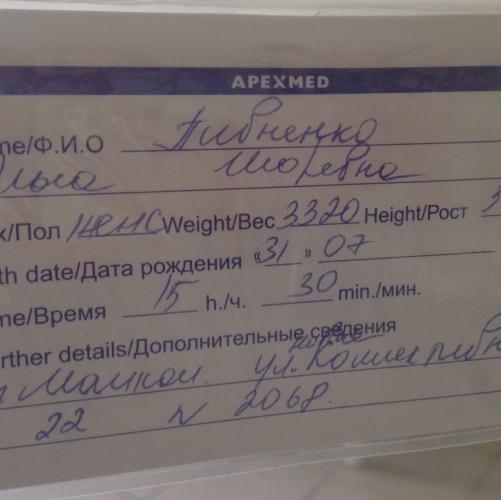 APEXMED
me/Ф.И.О Пивненко
льга Игоревна
x/Пол женс Weight/Вес 3320 Height/Рост
th date/Дата рождения «31» 07
me/Время 15 h./ч. 30 min./мин.
urther details/Дополнительные сведения
ул.
22 N 2068.